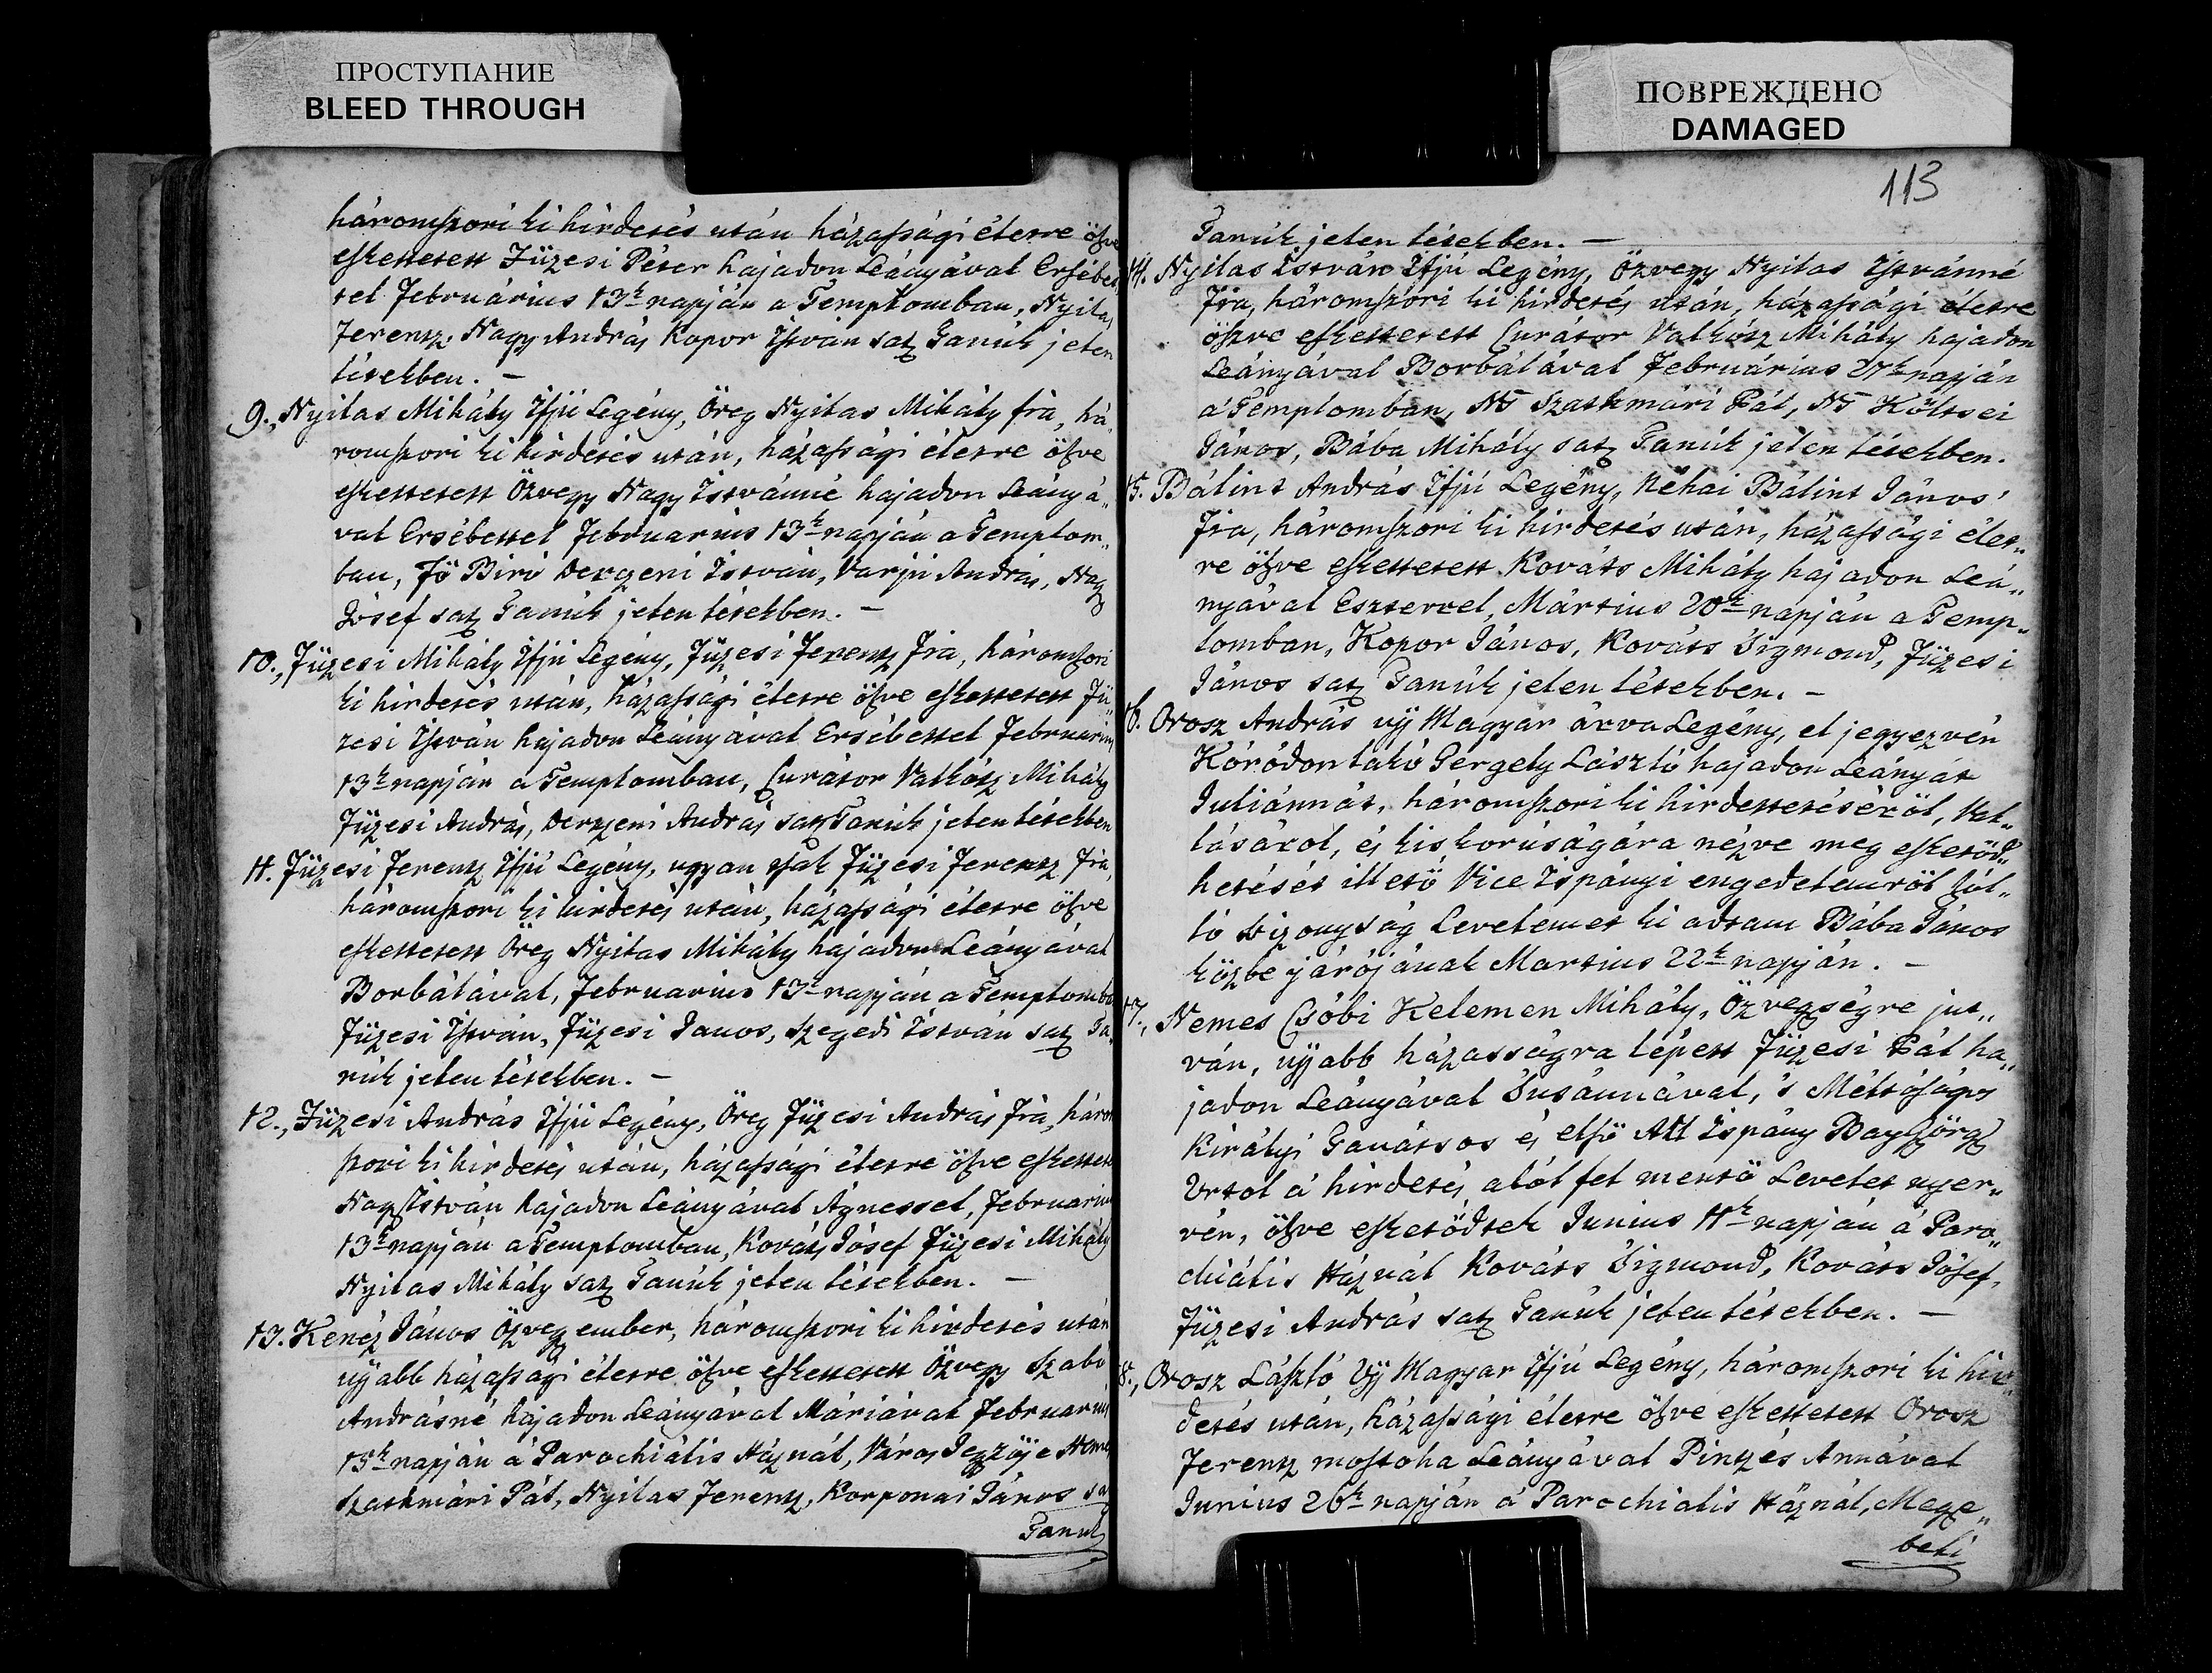 ПРОСТУПАНИЕ
BLEED THROUGH
háromszori ki hirdetés után házassági életre öszve
eskettetett Füzesi Péter hajadon Leányával Ersébet„
tel Februárius 13k napján a Templomban, Nyilas
Ferentz, Nagy András Kopor István satz Tanúk jelen
létekben. –
9., Nyilas Mihály Ifjú Legény, Öreg Nyilas Mihály fia, há„
romszori ki hirdetés után, házassági életre öszve
eskettetett Özvegy Nagy Istvánné hajadon Leányá„
val Ersébettel Februarius 13k napján a Templom„
ban, Fő Biró Dergeni István, Varjú András, Nagy
Jósef satz Tanúk jelen létekben. –
10., Füzesi Mihály Ifjú Legény, Füzesi Ferentz Fia, háromszori
ki hirdetés után, házassági életre öszve eskettetett Fü„
zesi István hajadon Leányával Ersébettel Februarius
13k napján a Templomban, Curátor Valkósz Mihály
Füzesi András, Derzseni András satz Tanúk jelen létekben
11. Füzesi Ferentz Ifjú Legény, ugyan tsak Füzesi Ferentz Fia,
háromszori ki hirdetés után, házassági életre öszve
eskettetett Öreg Nyilas Mihály hajadon Leányával
Borbálával, Februarius 13k napján a Templomba
Füzesi István, Füzesi Janos, Szegedi István satz Ta„
núk jelen létekben. –
12., Füzesi András Ifjú Legény, Öreg Füzesi András Fia, három
szori ki hirdetés után, házassági életre öszve eskettete
Nagy István hajadon Leányával Ágnessel, Februarius
13k napján a Templomban, Kováts Jósef Füzesi Mihály
Nyilas Mihály satz Tanúk jelen létekben. –
13. Kenéz János Özvegy ember, háromszori ki hirdetés után
ujjabb házassági életre öszve eskettetett Özvegy Szabó
Andrásné hajadon Leányával Máriával Februarius
15k napján á Parochiális Háznál, Város Jegzője Nemes
Szathmári Pál, Nyilas Ferentz, Korponai János sa
Tanuk
ПОВРЕЖДЕНО
DAMAGED
113
Tanúk jelen létekben. –
14. Nyilas István Ifjú Legény, Özvegy Nyilas Istvánné
Fia, háromszori ki hirdetés után, házassági életre
öszve eskettetett Curátor Valkósz Mihály hajadon
Leányával Borbálával Februárius 27k napján
á Templomban, NS Szathmári Pál, NS Költsei
János, Bába Mihály satz Tanúk jelen létekben.
15. Bálint András Ifjú Legény, Néhai Bálint János'
Fia, háromszori ki hirdetés után, házassági élet„
re öszve eskettetett Kováts Mihály hajadon Leá„
nyával Eszterrel, Mártius 20k napján a Temp„
lomban, Kopor János, Kováts Sigmond, Füzesi
János satz Tanúk jelen létekben. –
16. Orosz András ujj Magyar árva Legény, el jegyezvén
Kóródon lakó Gergely László hajadon Leányát
Juliánnát, háromszori ki hirdettetéséről, Val„
lásáról, és kiskorúságára nézve meg esketőd„
hetését illető Vice Ispányi engedelemről szól„
ló bizonyság Levelemet ki adtam Bába János
közbe járójának Martius 22k napján. –
17., Nemes Csóbi Kelemen Mihály, Özvegységre jut„
ván, ujjabb házasságra lépett Füzesi Pál ha„
jadon Leányával Susánnával, 's Méltóságos
Királyi Tanátsos és első All Ispány Bay György
Urtol á hirdetés alól fel mentő Levelet nyer„
vén, öszve esketődtek Junius 11k napján á Paro„
chiális Háznál Kováts Sigmond, Kováts Jósef,
Füzesi András satz Tanúk jelen létekben. –
18., Orosz László Ujj Magyar Ifjú Legény, háromszori ki hir„
detés után, házassági életre öszve eskettetett Orosz
Ferentz mostoha Leányával Pintzés Annával
Junius 26k napján á Parochialis Háznál, Megye„
beli